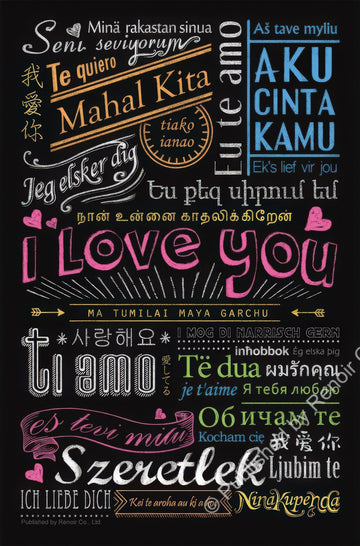 Minä rakastan sinua
Seni seviyorum
Aš tave myliu
我愛你
Te quiero
Mahal Kita
Eu te amo
AKU
CINTA
KAMU
tiako
ianao
Ek's lief vir jou
Jeg elsker dig
Ես քեզ սիրում եմ
நான் உன்னை காதலிக்கிறேன்
I Love you
MA TUMILAI MAYA GARCHU
사랑해요
I MOG DI NARRISCH GERN
ti amo
愛してる
inhobbok
Ég elska þig
Të dua
ผมรักคุณ
je t'aime
Я тебя люблю
es tevi mīlu
Обичам те
Kocham cię
我爱你
Szeretlek
Ljubim te
ICH LIEBE DICH
Kei te aroha au ki a koe
NinaKupenda
Published by Renoir Co., Ltd.
© Published by Renoir